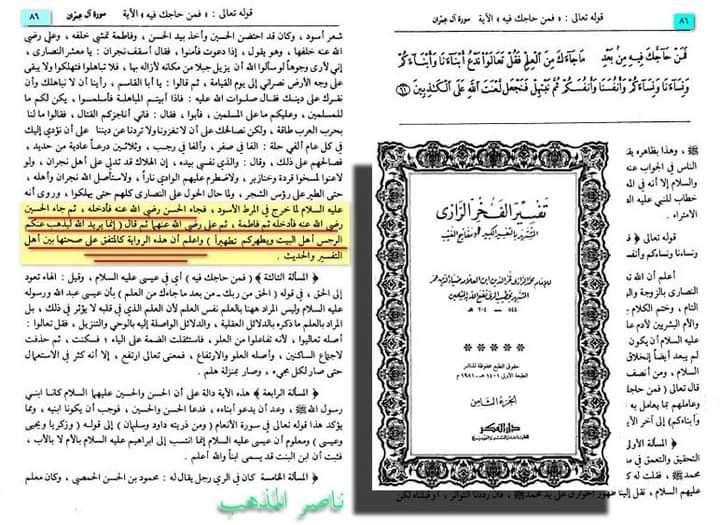 قوله تعالى : « فمن حاجك فيه » الآية سورة آل عمران ٨٦
شعر أسود ، وكان قد احتضن الحسين وأخذ بيد الحسن ، وفاطمة تمشي خلفه ، وعلي رضي
الله عنه خلفها ، وهو يقول ، إذا دعوت فأمنوا ، فقال أسقف نجران : يا معشر النصارى ،
إني لأرى وجوهاً لو سألوا الله أن يزيل جبلا من مكانه لأزاله بها ، فلا تباهلوا فتهلكوا ولا يبقى
على وجه الأرض نصراني إلى يوم القيامة ، ثم قالوا : يا أبا القاسم ، رأينا أن لا نباهلك وأن
نقرك على دينك فقال صلوات الله عليه : فاذا أبيتم المباهلة فأسلموا ، يكن لكم ما
للمسلمين ، وعليكم ما على المسلمين ، فأبوا ، فقال : فاني أناجزكم القتال ، فقالوا ما لنا
بحرب العرب طاقة ، ولكن نصالحك على أن لا تغزونا ولا تردنا عن ديننا على أن نؤدي إليك
في كل عام ألفي حلة : ألفا في صفر ، وألفا في رجب ، وثلاثين درعاً عادية من حديد ،
فصالحهم على ذلك ، وقال : والذي نفسي بيده ، إن الهلاك قد تدلى على أهل نجران ، ولو
لاعنوا لمسخوا قردة وخنازير ، ولاضطرم عليهم الوادي ناراً ، ولاستأصل الله نجران وأهله ،
حتى الطير على رؤس الشجر ، ولما حال الحول على النصارى كلهم حتى يهلكوا ، وروي أنه
عليه السلام لما خرج في المرط الأسود ، فجاء الحسن رضي الله عنه فأدخله ، ثم جاء الحسين
رضي الله عنه فأدخله ثم فاطمة ، ثم علي رضي الله عنهما ثم قال ( إنما يريد الله ليذهب عنكم
الرجس أهل البيت ويطهركم تطهيراً ) واعلم أن هذه الرواية كالمتفق على صحتها بين أهل
التفسير والحديث .
﴿ المسألة الثالثة ﴾ ( فمن حاجك فيه ) أي في عيسى عليه السلام ، وقيل : الهاء تعود
إلى الحق ، في قوله ( الحق من ربك ــ من بعد ماجاءك من العلم ) بأن عيسى عبد الله ورسوله
عليه السلام وليس المراد ههنا بالعلم نفس العلم لأن العلم الذي في قلبه لا يؤثر في ذلك ، بل
المراد بالعلم ما ذكره بالدلائل العقلية ، والدلائل الواصلة إليه بالوحي والتنزيل ، فقل تعالوا :
أصله تعاليوا ، لأنه تفاعلوا من العلو ، فاستثقلت الضمة على الياء ؛ فسكنت ، ثم حذفت
لاجتماع الساكنين ، وأصله العلو والارتفاع ، فمعنى تعالى ارتفع ، إلا أنه كثر في الاستعمال
حتى صار لكل مجيء ، وصار بمنزلة هلم .
﴿ المسألة الرابعة ﴾ هذه الآية دالة على أن الحسن والحسين عليهما السلام كانا ابني
رسول الله ﷺ ، وعد أن يدعو أبناءه ، فدعا الحسن والحسين ، فوجب أن يكونا ابنيه ، ومما
يؤكد هذا قوله تعالى في سورة الأنعام ( ومن ذريته داود وسليمان ) إلى قوله ( وزكريا ويحيى
وعيسى ) ومعلوم أن عيسى عليه السلام إنما انتسب إلى ابراهيم عليه السلام بالأم لا بالأب ،
فثبت أن ابن البنت قد يسمى ابناً والله أعلم .
﴿ المسألة الخامسة ﴾ كان في الري رجل يقال له : محمود بن الحسن الحمصي ، وكان معلم
ناصر المذهب
قوله تعالى : « فمن حاجك فيه » الآية سورة آل عمران ٨٦
فَمَنْ حَآجَّكَ فِيهِ مِنۢ بَعْدِ مَا جَآءَكَ مِنَ ٱلْعِلْمِ فَقُلْ تَعَالَوْا۟ نَدْعُ أَبْنَآءَنَا وَأَبْنَآءَكُمْ
وَنِسَآءَنَا وَنِسَآءَكُمْ وَأَنفُسَنَا وَأَنفُسَكُمْ ثُمَّ نَبْتَهِلْ فَنَجْعَل لَّعْنَتَ ٱللَّهِ عَلَى ٱلْكَٰذِبِينَ ﴿٦١﴾
ﷺ ، وهذا بظاهره يق
الناس في الجواب عنه
والسلام إلا أنه في الم
خطاب للنبي عليه ال
ونساءنا ونساءكم وأنفس
أعلم أن الله تع
النصارى بالزوجة وال
التام ، وختم الكلام
والأم البشريين لآدم عا
لم يبعد أيضاً إنخلاق
السلام ، ومن أنصف
قال تعالى ( فمن حاج
وعاملهم بما يعامل به
وأبناءكم ) إلى آخر الآي
﴿ المسألة الأولى
التحقيق والتعمق في م
ﷺ ، فقلت له كم
عليه السلام ، نقل إلينا ظهور الخوارق على يد محمد ﷺ ، فان رددنا التواتر ، أو قبلناه لكن
تفسير الفخر الرازي
المشتهر بالتفسير الكبير ومفاتيح الغيب
للإمام محمد الرازي فخر الدين ابن العلامة ضياء الدين عمر
الشهير بخطيب الري نفع الله به المسلمين
٥٤٤ ــ ٦٠٤ هـ
حقوق الطبع محفوظة للناشر
الطبعة الأولى ١٤٠١ هـ ــ ١٩٨١ م
الجزء الثامن
دار الفكر
للطباعة والنشر والتوزيع